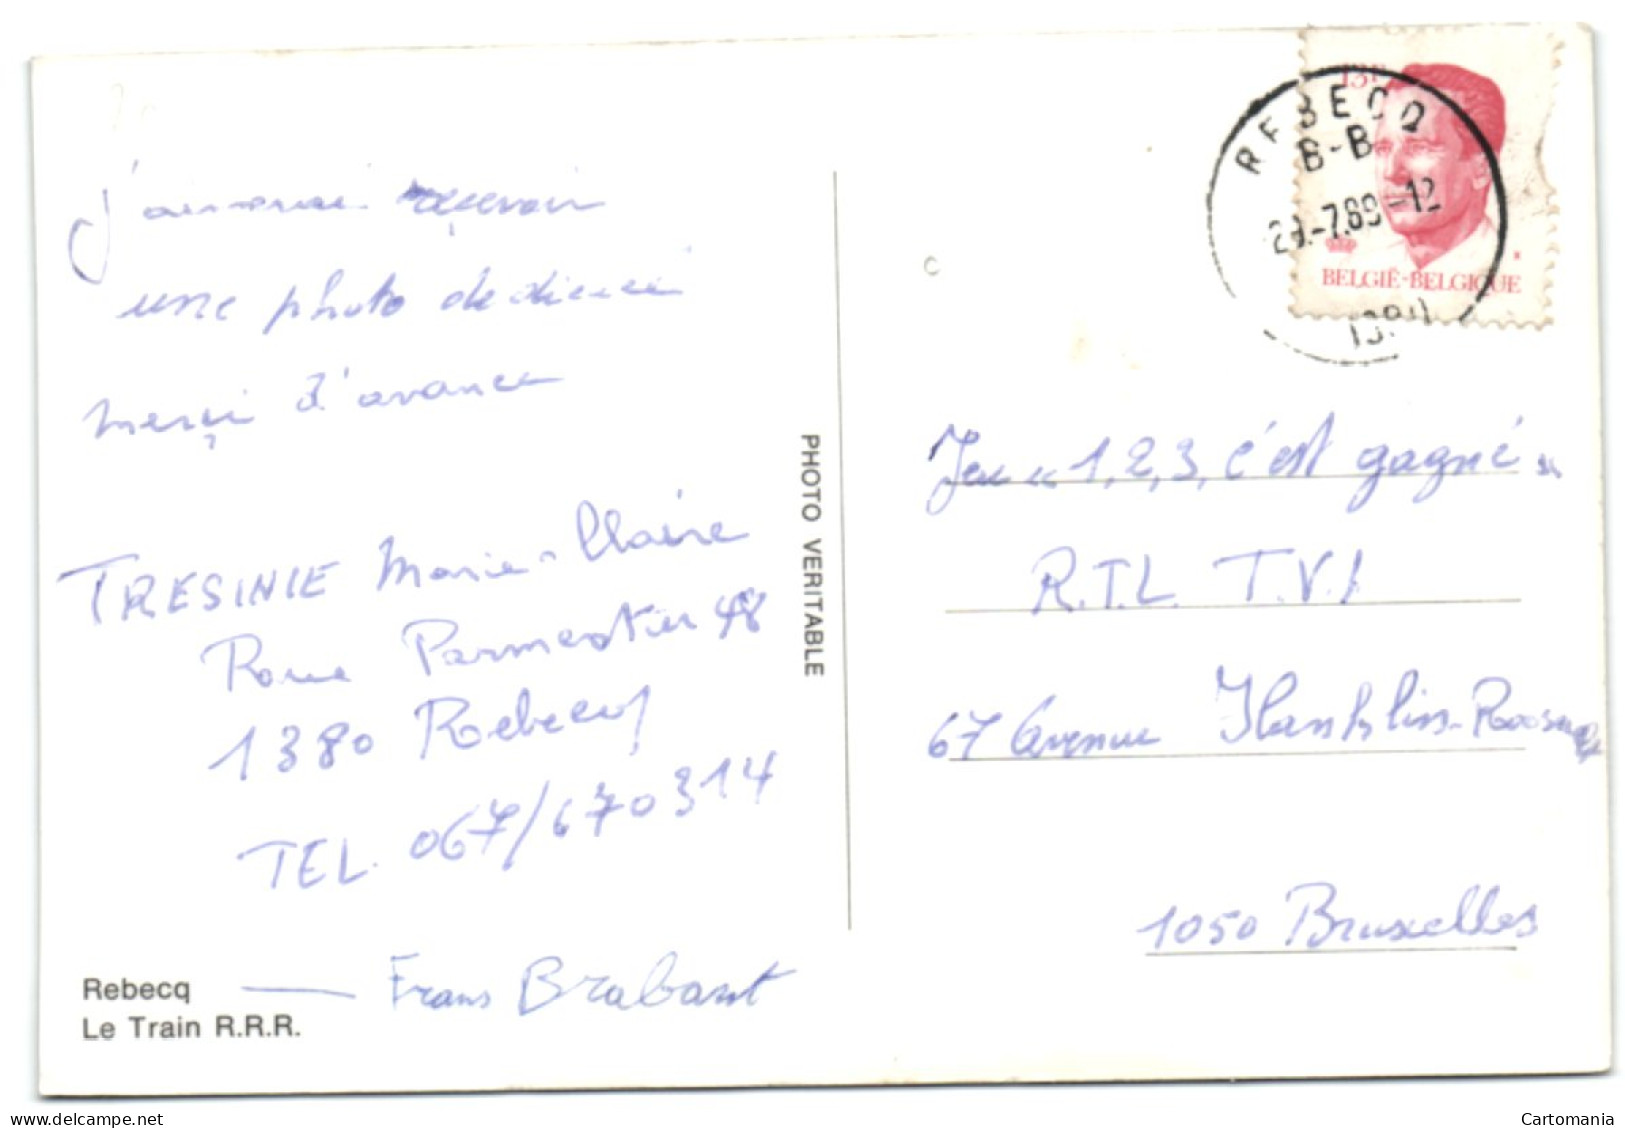 j'aimerai recevoir
une photo dedicacé
merçi d'avance
TRESINIE Marie-Claire
Roue Parmentier 48
1380 Rebecq
TEL. 067/670314
Rebecq
Frans Brabant
Le Train R.R.R.
PHOTO VERITABLE
13F
REBECQ
B-B
-7.89-12
BELGIË-BELGIQUE
Jeu "1,2,3, c'est gagné"
R.T.L. T.V.I
67 Avenue Franklin-Roosevelt
1050 Bruxelles
delcampe.net
Cartomania